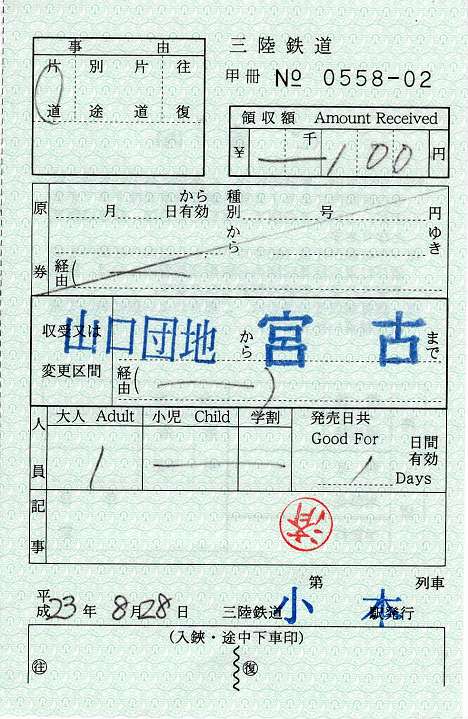 事 由
片道 別途 片道 往復
三陸鉄道
甲冊 № 0558-02
領収額 Amount Received
千
¥ 100 円
原券
月 日から有効 種別 号 円
から ゆき
経由( )
収受又は変更区間
山口団地 から 宮古 まで
経由( )
人員
大人 Adult 小児 Child 学割 発売日共
Good For 日間有効
1 1 Days
記事
済
第 列車
平成23年 8月28日 三陸鉄道 小本 駅発行
(入鋏・途中下車印)
往 復